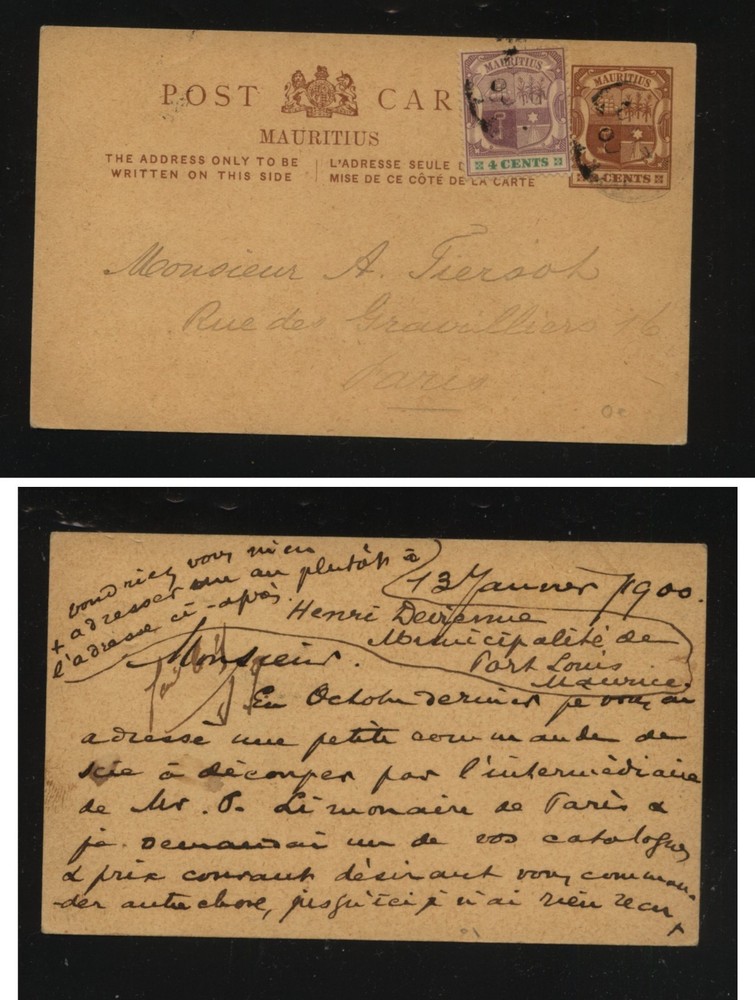 POST CAR
MAURITIUS
THE ADDRESS ONLY TO BE
WRITTEN ON THIS SIDE
L'ADRESSE SEULE
MISE DE CE CÔTÉ DE LA CARTE
MAURITIUS
4 CENTS
MAURITIUS
CENTS
Monsieur A. Tiersot
Rue des Gravilliers 16
Paris
voudriez vous bien
+ adresser au plutôt à
l'adresse ci-après
13 Janvier 1900.
Henri Devienne
Municipalité de
Port Louis
Maurice
Monsieur.
En Octobre dernier je vous ai
adressé une petite commande de
scie à découper par l'intermédiaire
de Mr. Limonaire de Paris &
je demandai un de vos catalogues
& prix courant désirant vous comman-
der autre chose, jusqu'ici je n'ai rien reçu +